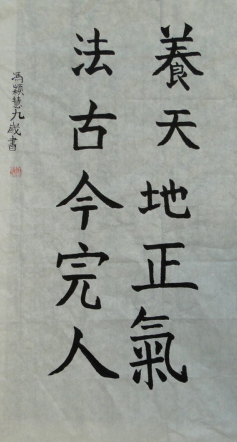 養天地正氣
法古今完人
馮穎慧九歲書